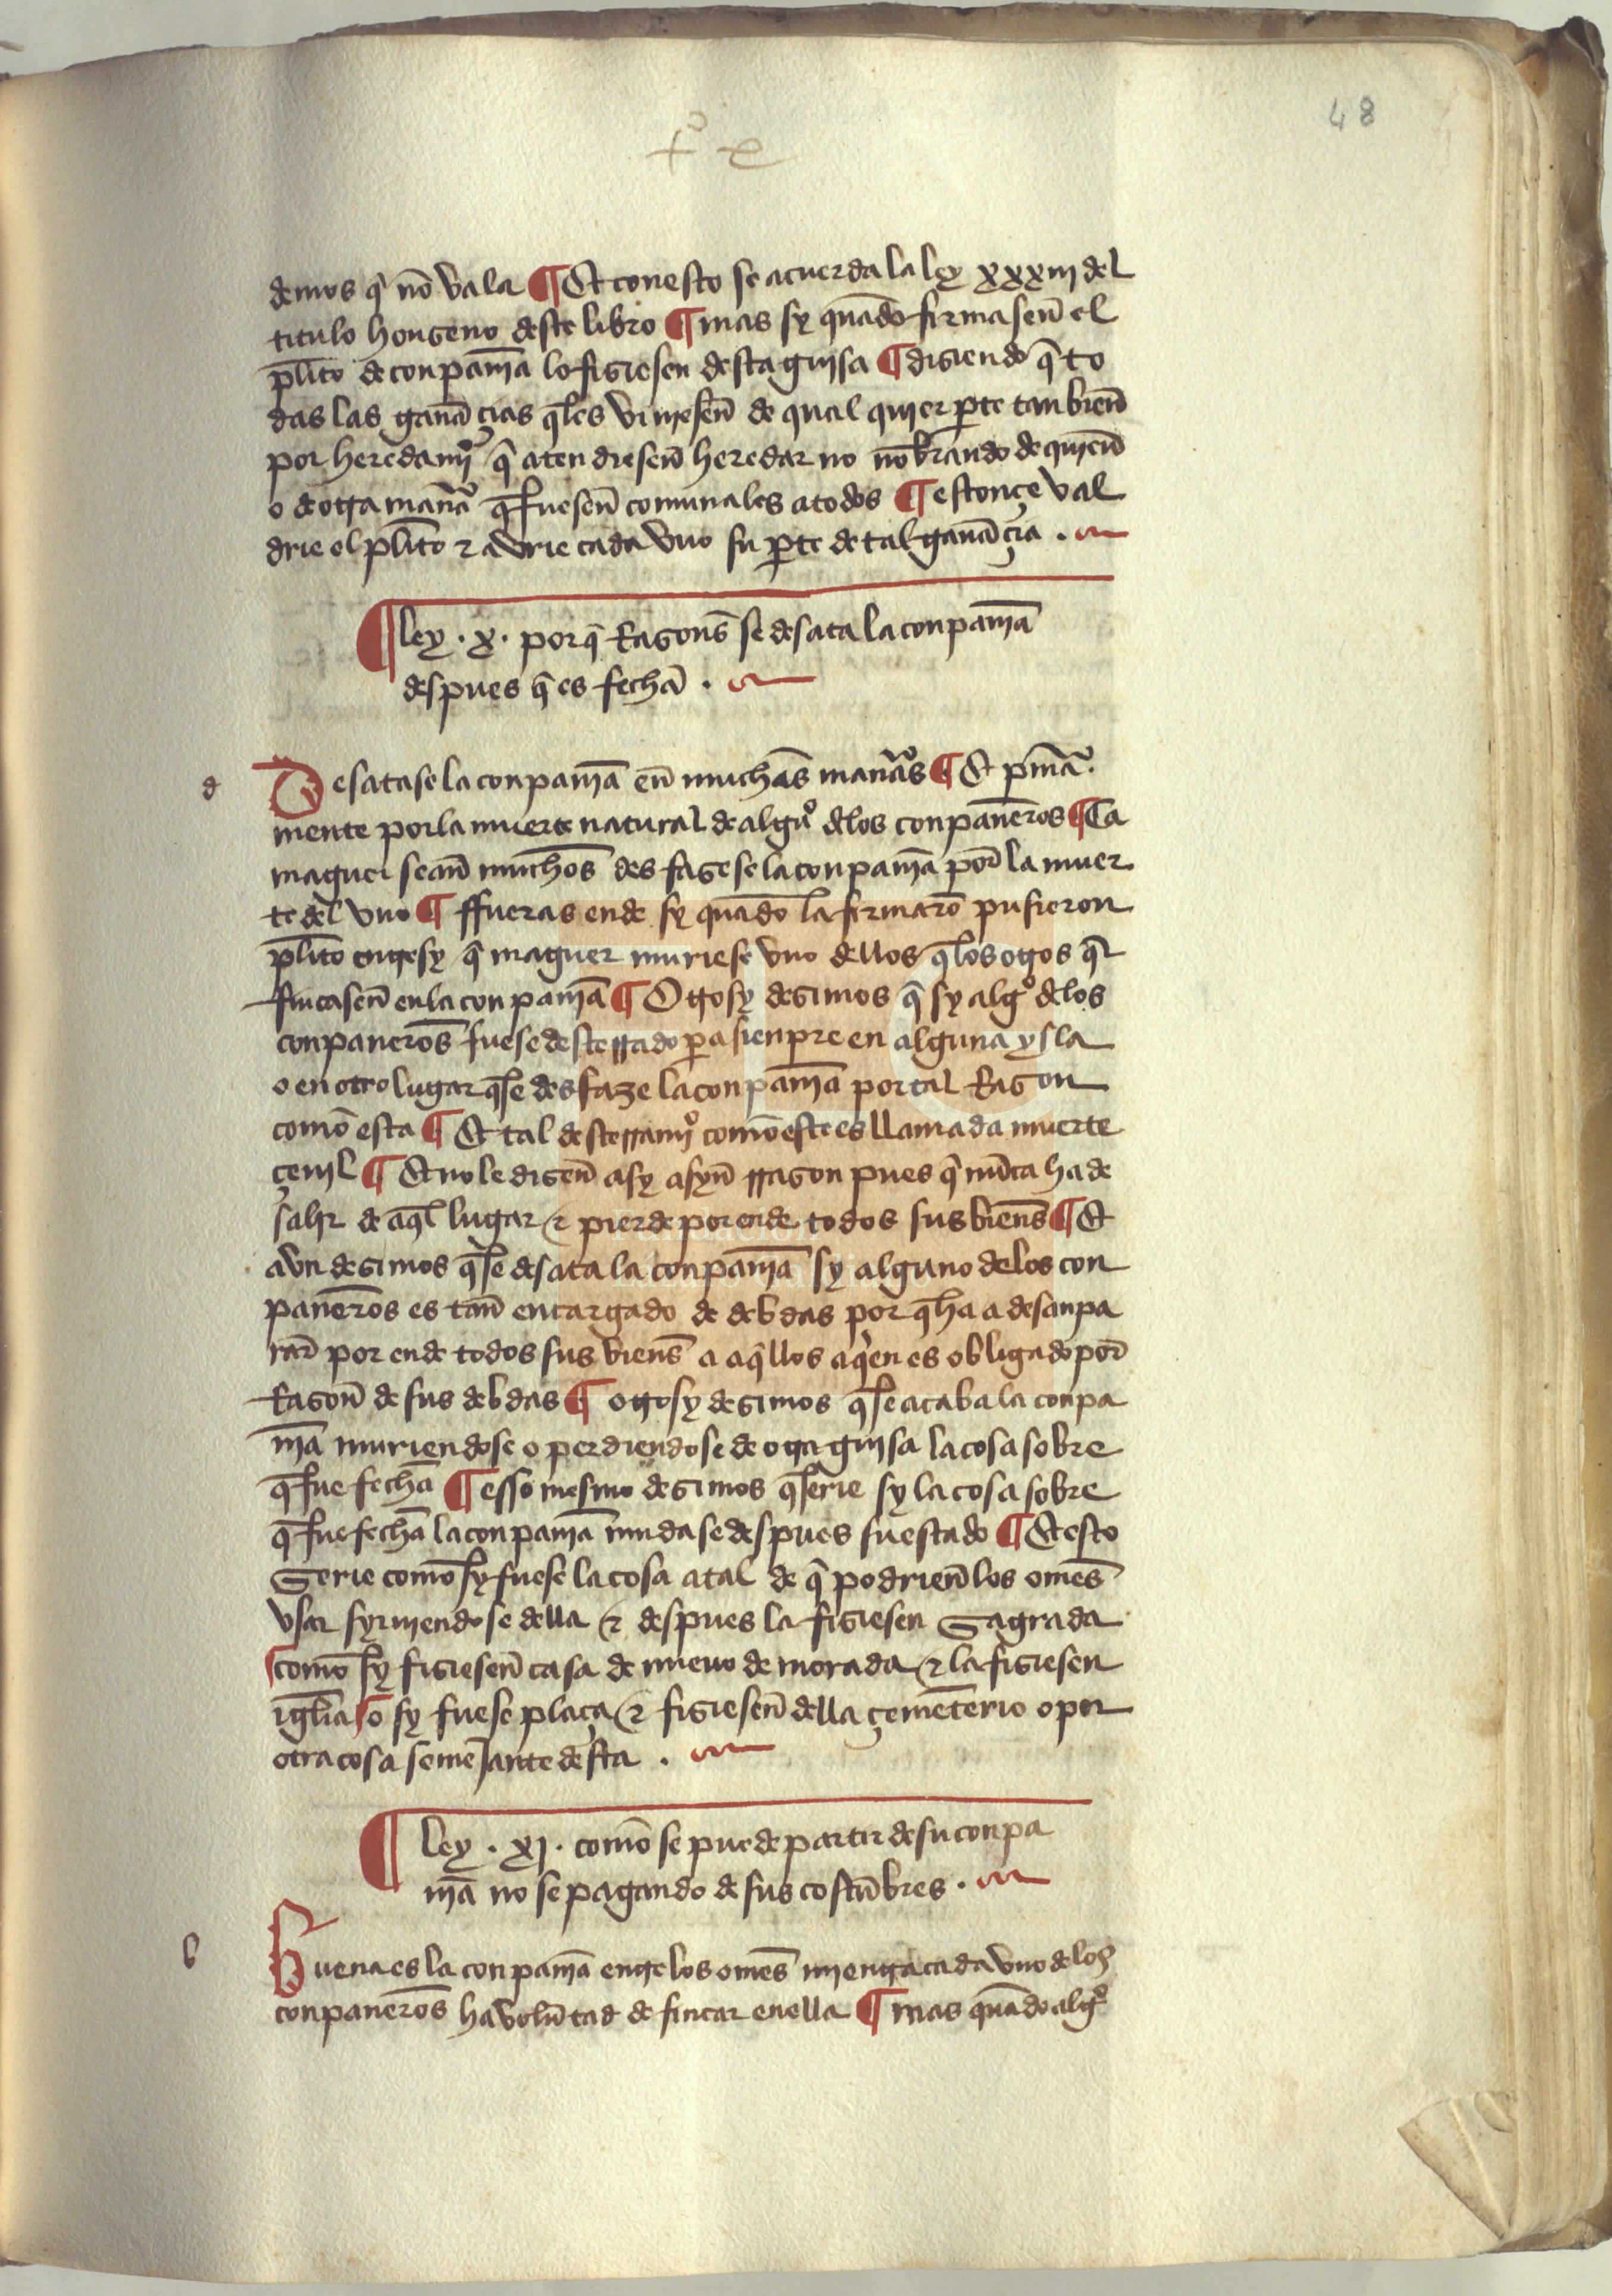 48
demos q̃ nõ vala ¶ Et con esto se acuerda la ley xxxiii del
titulo honzeno deste libro ¶ mas sy quãdo firmasen̄ el
pl̃ito de conpam̃a lo fiziesen desta guisa ¶ diziendo q̃ to
das las ganãçias q̃ les viniesen̄ de qual quier pte tan bien̄
por heredamjº q̃ atendiesen̄ heredar no nõbrando de quien̄
o de otra manãa q̃ fuesen̄ comunales a todos ¶ estonçe val
drie el pl̃ito ⁊ avrie cada vno su pte de tal ganãçia .
¶ ley . x . por q̃ Razons̃ se desata la conpam̃a
despues q̃ es fecha .
d
Desatase la conpam̃a en̄ muchas manãas ¶ Et pm̃a
mente por la muerte natural de algũº delos conpaneros ¶ Ca
maguer sean̄ muchos desfazese la conpam̃a por la muer
te del vno ¶ ffueras ende sy quãdo la firmarõ pusieron
pl̃ito entresy q̃ maguer muriese vno dellos q̃ los otros q̃
fincasen̄ en la conpam̃a ¶ Otrosy dezimos q̃ sy algº delos
conpaneros fuese desterrado pa sienpre en alguna ysla
o en otro lugar q̃ se desfaze la conpam̃a por tal Razon
como esta ¶ Et tal desterramjº como este es llamada muerte
çevil ¶ Et no le dizen̄ asy asyn̄ rrazon pues q̃ nũca ha de
salir de aq̃l lugar ⁊ pierde por ende todos sus biens̃ ¶ Et
avn dezimos q̃ se desata la conpam̃a sy alguno delos con
paneros es tan̄ encargado de debdas por q̃ ha a desanpa
rar por ende todos sus biens̃ a aq̃llos a qien es obligado por
Razon̄ de sus debdas ¶ otrosy dezimos q̃ se acaba la conpa
m̃a muriendose o perdiendose de otra guisa la cosa sobre
q̃ fue fecha ¶ esso mesmo dezimos q̃ serie sy la cosa sobre
q̃ fue fecha la conpam̃a mudase despues su estado ¶ Et esto
Serie como sy fuese la cosa atal de q̃ podrien̄ los omes
vsar syruiendose della ⁊ despues la fiziesen Sagrada
como sy fiziesen̄ casa de nueuo de morada ⁊ la fiziesen
igl̃ia o sy fuese plaça ⁊ fiziesen̄ della çementerio o por
otra cosa semejante desta .
¶ ley . xj . como se puede partir de su conpa
m̃a no se pagando de sus costũbres .
b
Buena es la conpam̃a entre los omes mientra cada vno delos
conpaneros ha volũtad de fincar en ella ¶ mas quãdo algº